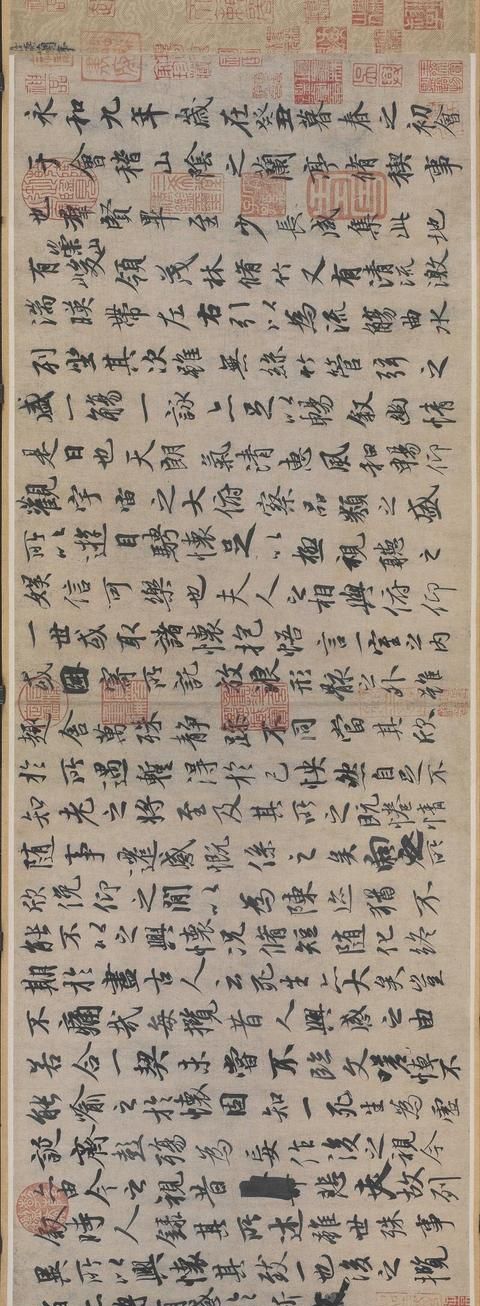 永和九年歲在癸丑暮春之初會
于會稽山陰之蘭亭脩稧事
也群賢畢至少長咸集此地
有崇山峻領茂林脩竹又有清流激
湍暎帶左右引以為流觴曲水
列坐其次雖無絲竹管弦之
盛一觴一詠亦足以暢叙幽情
是日也天朗氣清惠風和暢仰
觀宇宙之大俯察品類之盛
所以遊目騁懷足以極視聽之
娛信可樂也夫人之相與俯仰
一世或取諸懷抱悟言一室之內
或因寄所託放浪形骸之外雖
趣舍萬殊靜躁不同當其欣
於所遇暫得於己怏然自足不
知老之將至及其所之既惓情
隨事遷感慨係之矣向之所
欣俛仰之閒以為陳迹猶不
能不以之興懷況脩短隨化終
期於盡古人云死生亦大矣豈
不痛哉每攬昔人興感之由
若合一契未嘗不臨文嗟悼不
能喻之於懷固知一死生為虛
誕齊彭殤為妄作後之視今
亦由今之視昔悲夫故列
叙時人錄其所述雖世殊事
異所以興懷其致一也後之攬